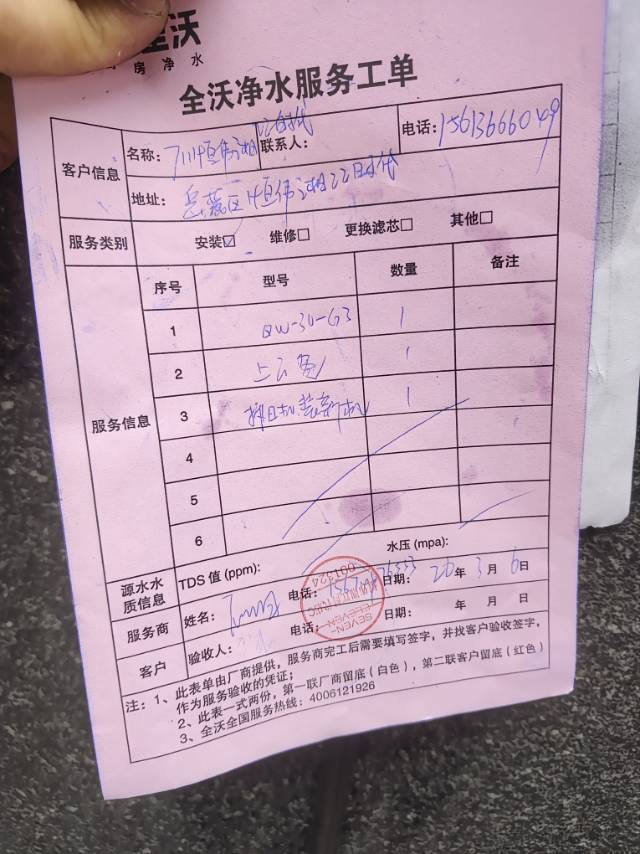 沃
房净水
全沃净水服务工单
客户信息
名称：
联系人：
电话：15613666049
地址：岳麓区
服务类别
安装☑ 维修□ 更换滤芯□ 其他□
服务信息
序号 型号 数量 备注
1 QW-34-G3 1
2 1
3 装新机 1
4
5
6
源水水质信息
TDS 值 (ppm): 水压 (mpa):
服务商 姓名： 电话： 日期：26年3月6日
客户 验收人： 电话： 日期： 年 月 日
SEVEN-ELEVEN
001324
注：1、此表单由厂商提供，服务商完工后需要填写签字，并找客户验收签字，
作为服务验收的凭证；
2、此表一式两份，第一联厂商留底（白色），第二联客户留底（红色）
3、全沃全国服务热线：4006121926